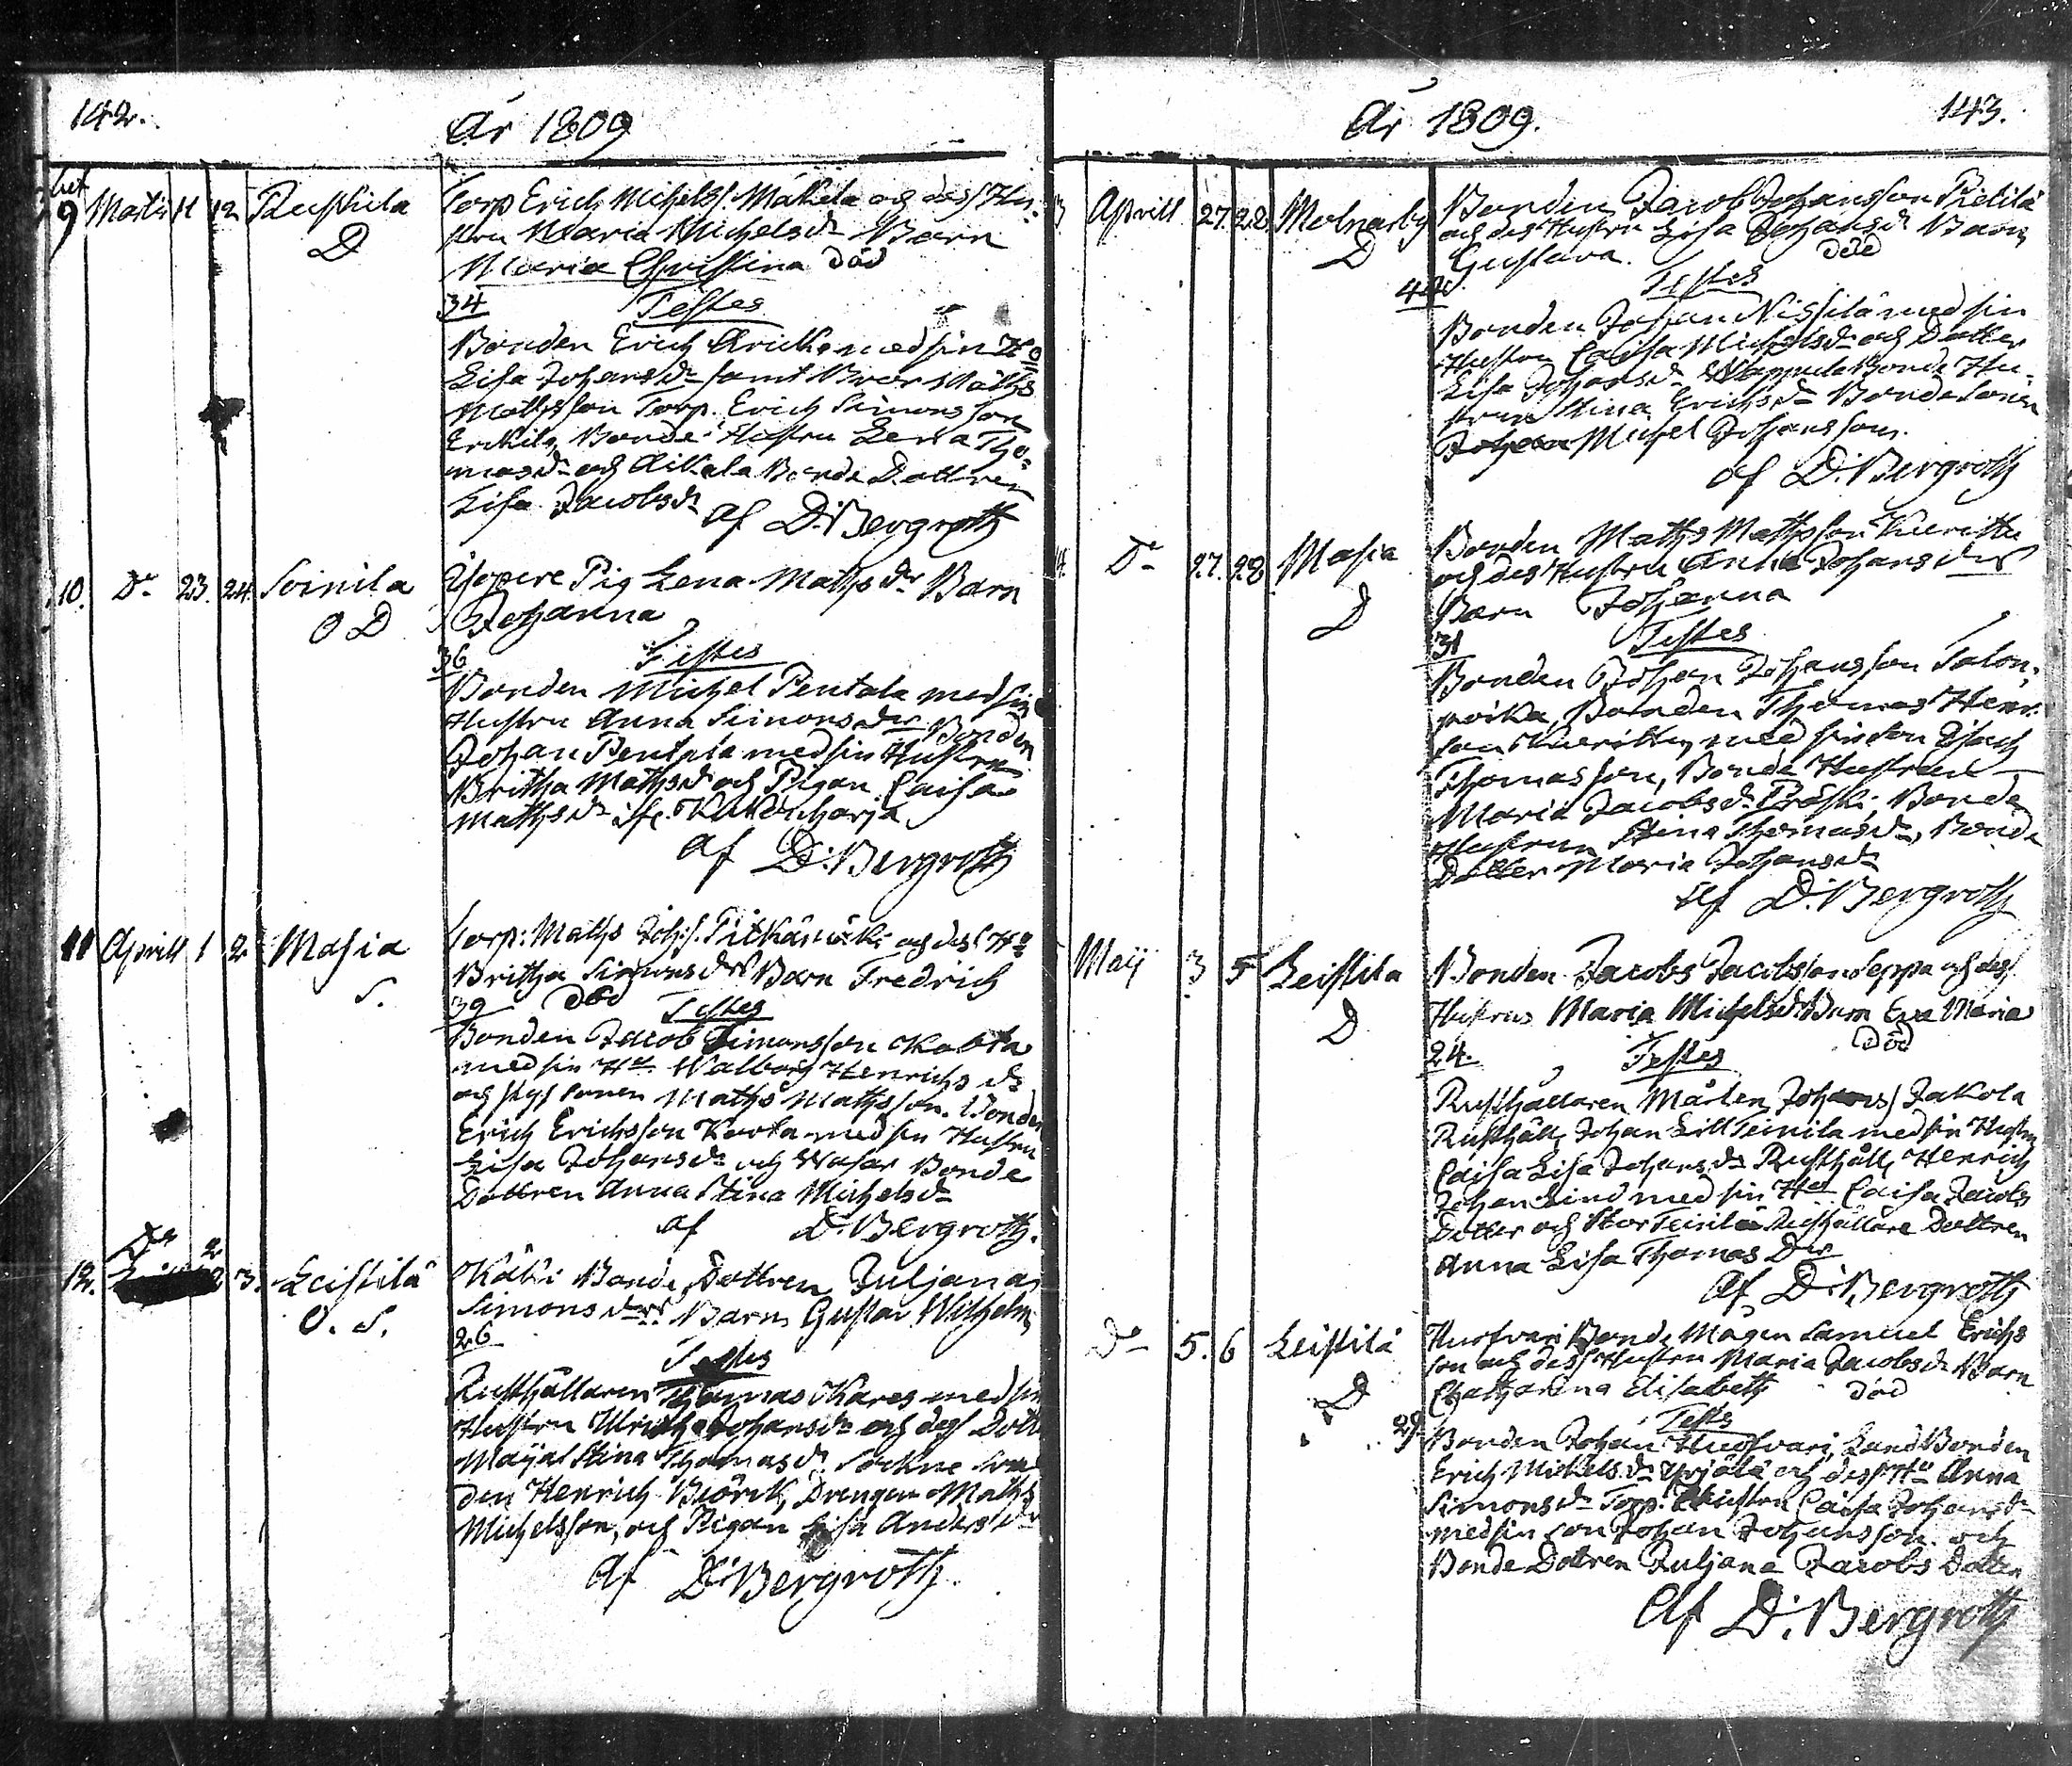 142.
År 1809
9 Martii 11 12 Ruskila
D
Torp Erich Michelss. Mäkelä och dess Hu-
stru Maria Michelsdr Barn
Maria Christina död
34 Testes
Bonden Erich med sin Ho
Lisa Johansdr samt Bror Maths
Mathsson Torp. Erich Simonsson
Erkilä, Bonde Hustru Lena Tho-
masdr och Aikala Bonde Dottren
Lisa Jacobsdr
af D: Bergroth
10. Do 23. 24. Soinila
O D
Pig Lena Mathsdr Barn
Johanna
36 Testes
Bonden Michel Pentala med sin
Hustru Anna Simonsdr Bonden
Johan Pentala med sin Hustru
Britha Mathsdr och Pigan Caisa
Mathsdr
af D: Bergroth
11 Aprill 1 2 Masia
S.
Torp: Maths Joh:s. Pitkämäki och dess Ho
Britha Simonsdrs Barn Fredrich
39 död Testes
Bonden Jacob Simonsson
med sin Hu Walborg Henrichsdr
och sonen Maths Mathsson. Bonden
Erich Erichsson med sin Hustru
Lisa Johansdr och Bonde
Dottren Anna Stina Michelsdr
af D: Bergroth.
12. Do 2 3. Leistilä
O. S.
Käki Bonde Dottren Juljana
Simonsdrs Barn Gustav Wilhelm
26
Testes
Rusthållaren Thomas Kares med sin
Hustru Johansdr och dess Dotter
Maija Stina Thomasdr. Sockne
den Henrich Drengen Maths
Michelsson, och Pigan Lisa Andersdr
Af D: Bergroth.
År 1809.
143.
Aprill 27. 28. Molnarby
D
Bonden Jacob Johansson Pietilä
och des Hustru Lisa Johansdr Barn
Gustava. död
44 Testes
Bonden Johan Nissilä med sin
Hustru Caisa Michelsdr och Dotter
Lisa Johansdr Bonde Hu-
strun Stina Erichsdr Bonde Sonen
Michel Johansson.
af D: Bergroth
Do 27. 28 Masia
D
Bonden Maths Mathsson
och des Hustru Anna Johansdrs
Barn Johanna
31 Testes
Bonden Johan Johansson Salon-
Bonden Thomas Henr.
son med sin son
Thomasson, Bonde Hustrun
Maria Jacobsdr Bonde
Hustrun Stina Thomasdr, Bonde
Dotter Maria Johansdr
Af D: Bergroth
Maij 3 5 Leistila
D
Bonden Jacobs Jacobsson Seppa och des
Hustrus Maria Michelsdr Barn Eva Maria
död
24. Testes
Rusthållaren Mårten Johans Jakola
Rusthåll. Johan Lill Teinila med sin Hustru
Caisa Lisa Johansdr Rusthåll. Henrich
Johan Lind med sin Hu Caisa Jacobs
Dotter och Stor Teinilä Rusthållare Dottren
Anna Lisa Thomas Dr
Af D: Bergroth
Do 5. 6 Leistilä
D
Hurfvari Bonde Mågen Samuel Erichs
son och dess Hustru Maria Jacobsdr Barn
Chatharina Elisabeth död
29. Testes
Bonden Johan Hurfvari, Land Bonden
Erich Michels Yrjölä och des Hu Anna
Simonsdr Torp. Hustru Caisa Johansdr
med sin son Johan Johansson och
Bonde Dottren Juljana Jacobs Dotter
Af D: Bergroth